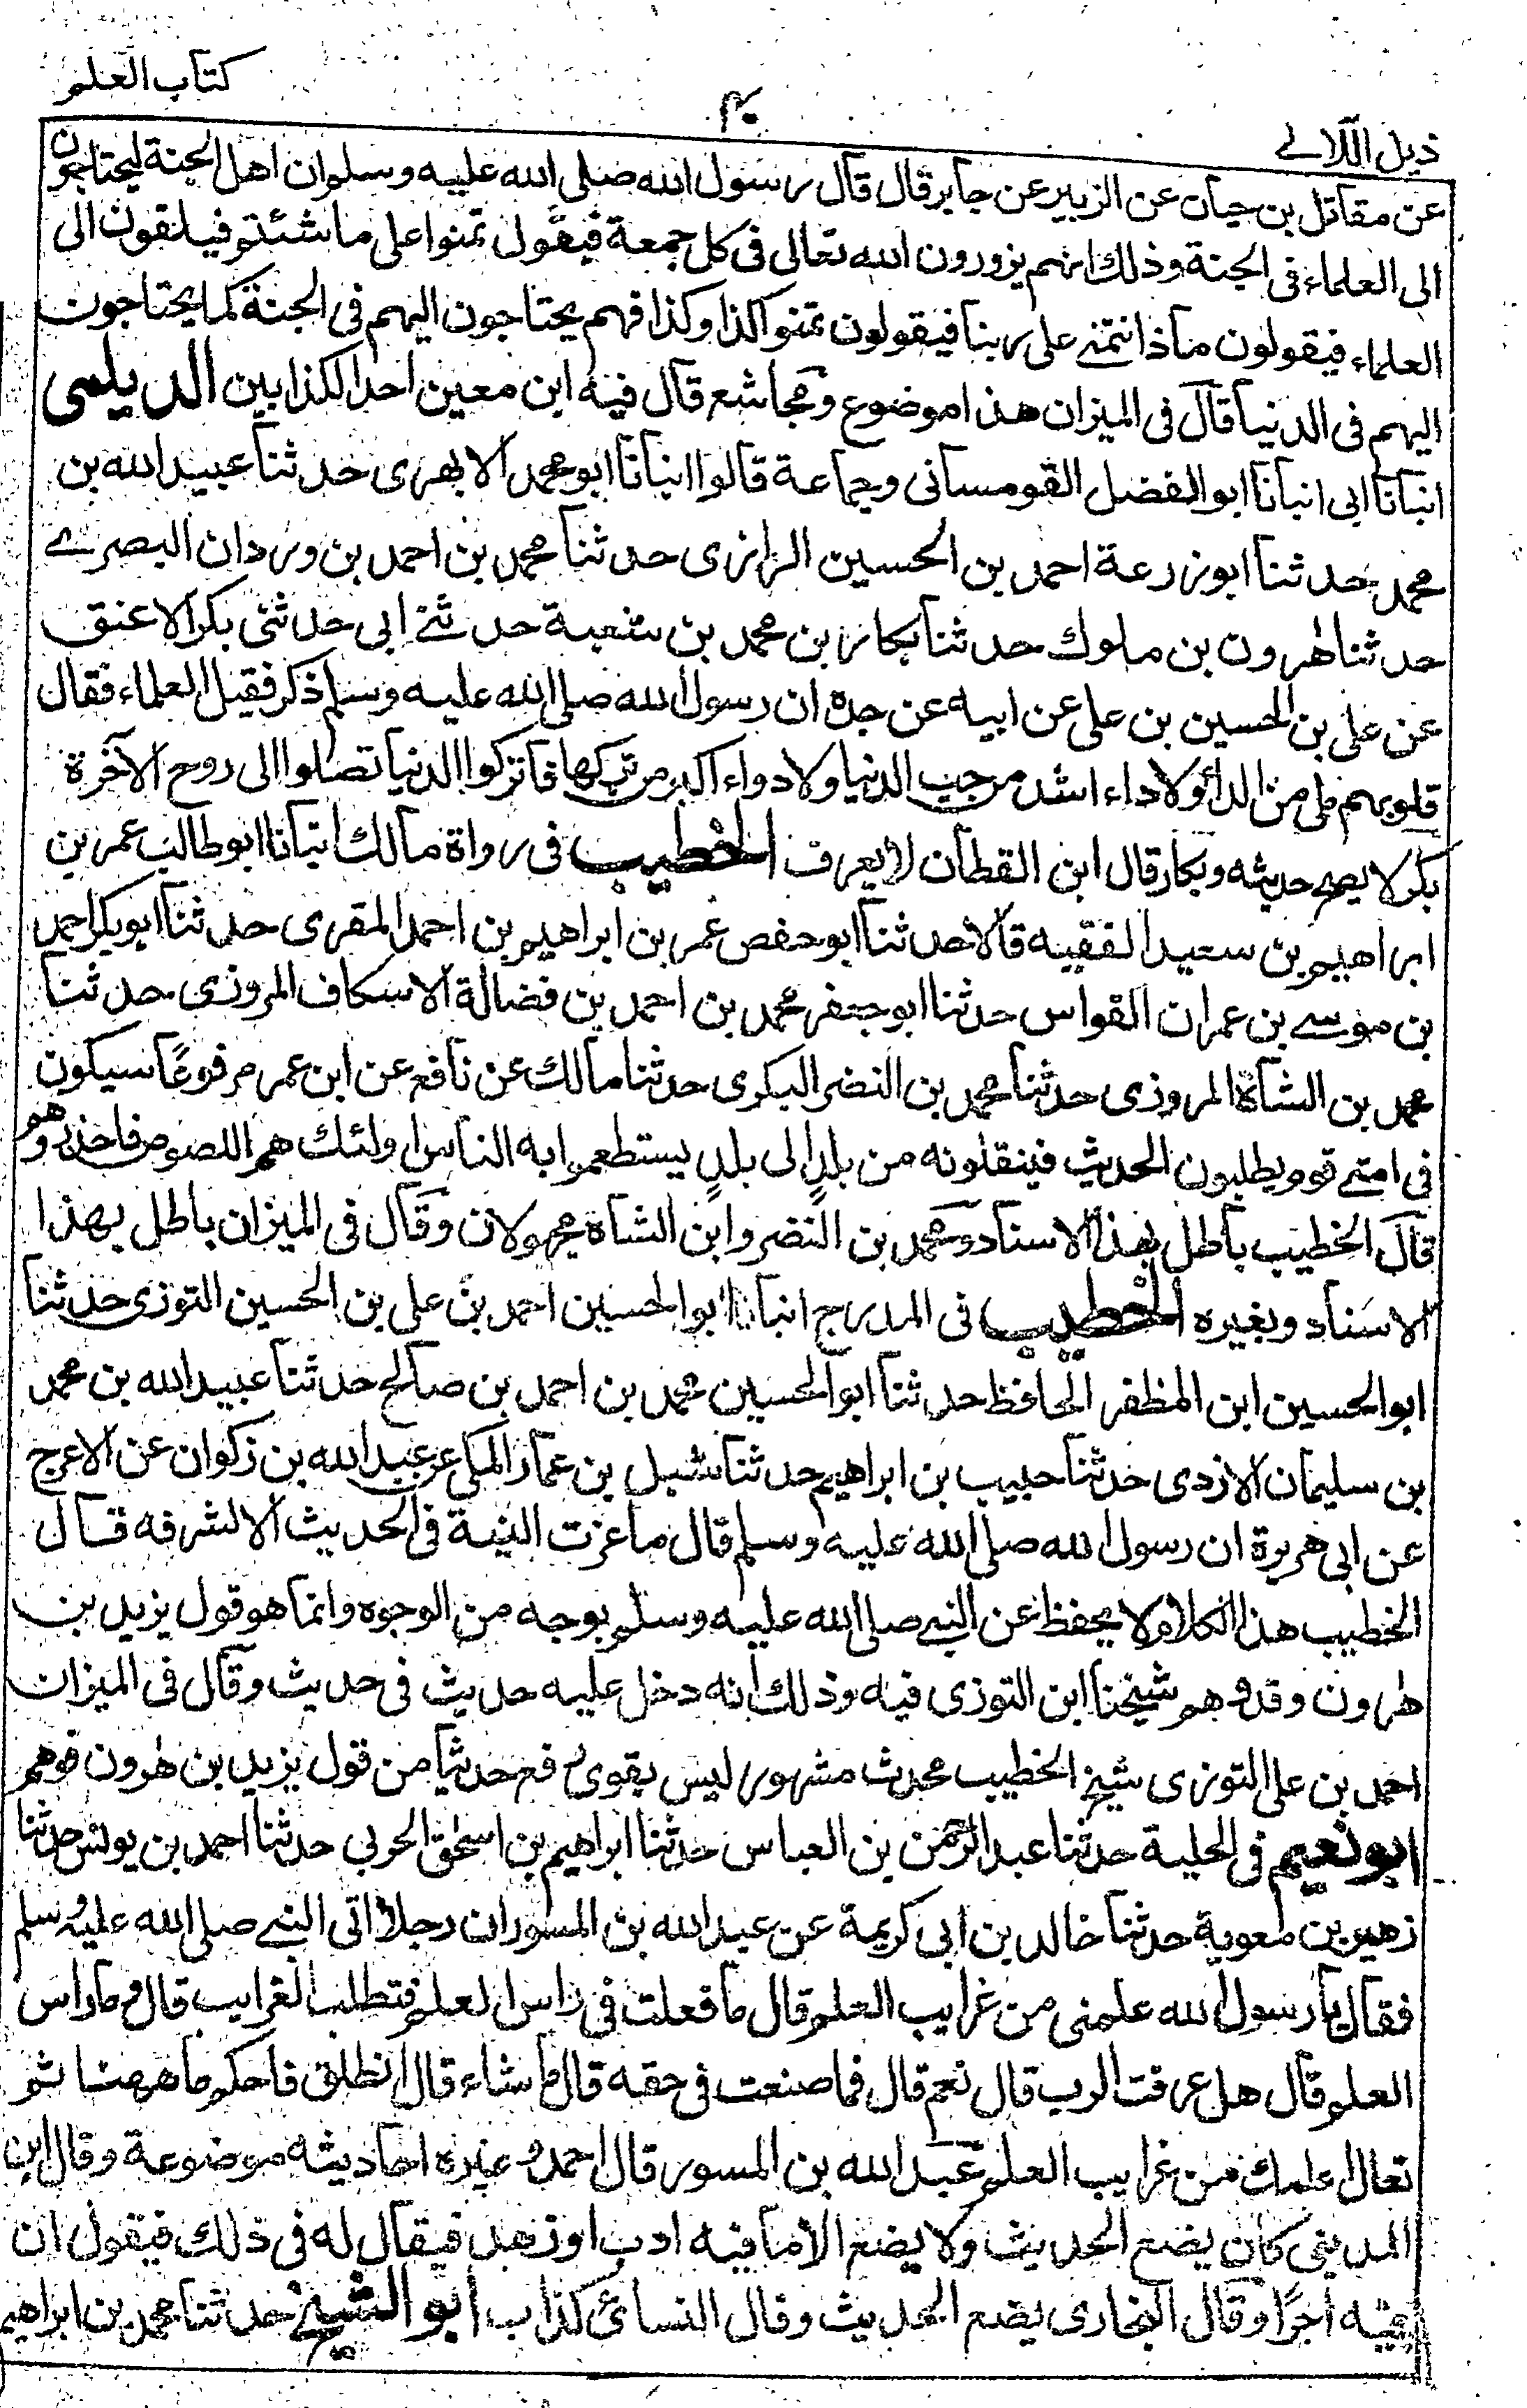 كتاب العلم
٤٠
ذيل اللآلے
عن مقاتل بن حيان عن الزبير عن جابر قال قال رسول الله صلى الله عليه وسلم ان اهل الجنة ليحتاجون
الى العلماء فى الجنة وذلك انهم يزورون الله تعالى فى كل جمعة فيقول تمنوا على ما شئتم فيلتقون الى
العلماء فيقولون ماذا نتمنے على ربنا فيقولون تمنوا كذا وكذا فهم يحتاجون اليهم فى الجنة كما يحتاجون
اليهم فى الدنيا قال فى الميزان هذا موضوع ومجاشع قال فيه ابن معين احد الكذابين الديلمى
انبأنا ابى انبأنا ابو الفضل القومسانى وجماعة قالوا انبأنا ابو محمد الابهرى حدثنا عبيد الله بن
محمد حدثنا ابو زرعة احمد بن الحسين الرازى حدثنا محمد بن احمد بن وردان البصرے
حدثنا هرون بن ملوك حدثنا بكار بن محمد بن شعبة حدثنے ابى حدثنى بكر الاعنق
عن على بن الحسين بن على عن ابيه عن جده ان رسول الله صلى الله عليه وسلم ذكر فقيل العلماء فقال
قلوبهم ملى من الداء ولا داء اشد من حب الدنيا ولا دواء اكبر من تركها فاتركوا الدنيا تصلوا الى روح الآخرة
بكر لا يصح حديثه وبكار قال ابن القطان لا يعرف الخطيب فى رواة مالك انبأنا ابو طالب عمر بن
ابراهيم بن سعيد الفقيه قالا حدثنا ابو حفص عمر بن ابراهيم بن احمد المقرى حدثنا ابو بكر احمد
بن موسے بن عمران القواس حدثنا ابو جعفر محمد بن احمد بن فضالة الاسكاف المروزى حدثنا
محمد بن الشاة المروزى حدثنا محمد بن النضر البكرى حدثنا مالك عن نافع عن ابن عمر مرفوعًا سيكون
فى امتے قوم يطلبون الحديث فينقلونه من بلدٍ الى بلدٍ يستطعموا به الناس اولئك هم اللصوص فاحذروهم
قال الخطيب باطل بهذا الاسناد ومحمد بن النضر وابن الشاة مجهولان وقال فى الميزان باطل بهذا
الاسناد وبغيره الخطيب فى المدرج انبأنا ابو الحسين احمد بن على بن الحسين التوزى حدثنا
ابو الحسين ابن المظفر الحافظ حدثنا ابو الحسين محمد بن احمد بن صالح حدثنا عبيد الله بن محمد
بن سليمان الازدى حدثنا حبيب بن ابراهيم حدثنا شبل بن عمار المكى عن عبد الله بن زكوان عن الاعرج
عن ابى هريرة ان رسول الله صلى الله عليه وسلم قال ما عزت النية فى الحديث الا لشرفه قال
الخطيب هذا الكلام لا يحفظ عن النبے صلى الله عليه وسلم بوجه من الوجوه وانما هو قول يزيد بن
هرون وقد وهم شيخنا ابن التوزى فيه وذلك انه دخل عليه حديث فى حديث وقال فى الميزان
احمد بن على التوزى شيخ الخطيب محدث مشهور ليس بقوى رفع حديثا من قول يزيد بن هرون فوهم
ابو نعيم فى الحلية حدثنا عبد الرحمن بن العباس حدثنا ابراهيم بن اسحق الحربى حدثنا احمد بن يونس حدثنا
زهير بن معوية حدثنا خالد بن ابى كريمة عن عبد الله بن المسور ان رجلا اتى النبے صلى الله عليه وسلم
فقال يا رسول الله علمنى من غرايب العلم قال ما فعلت فى راس العلم فتطلب الغرايب قال وما راس
العلم قال هل عرفت الرب قال نعم قال فما صنعت فى حقه قال ما شاء قال انطلق فاحكم ما ههنا ثم
تعال اعلمك من غرايب العلم عبد الله بن المسور قال احمد وغيره احاديثه موضوعة وقال ابن
المدينى كان يضع الحديث ولا يضع الا ما فيه ادب او زهد فيقال له فى ذلك فيقول ان
فيه اجرًا وقال البخارى يضع الحديث وقال النسائ كذاب ابو الشيخ حدثنا محمد بن ابراهيم